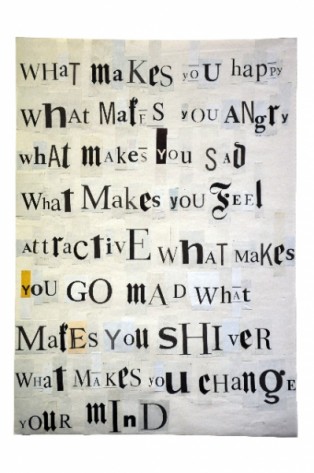 WHaT maKEs yoU happy
WhAt MaKES yOU ANgry
whAt maKes You SAD
WhaT Makes you FEEl
aTTracTivE WhaT maKes
YoU GO mAD WHat
MaKEs YOu SHIvER
WHaT MaKES yoU cHangE
YOUR mInD